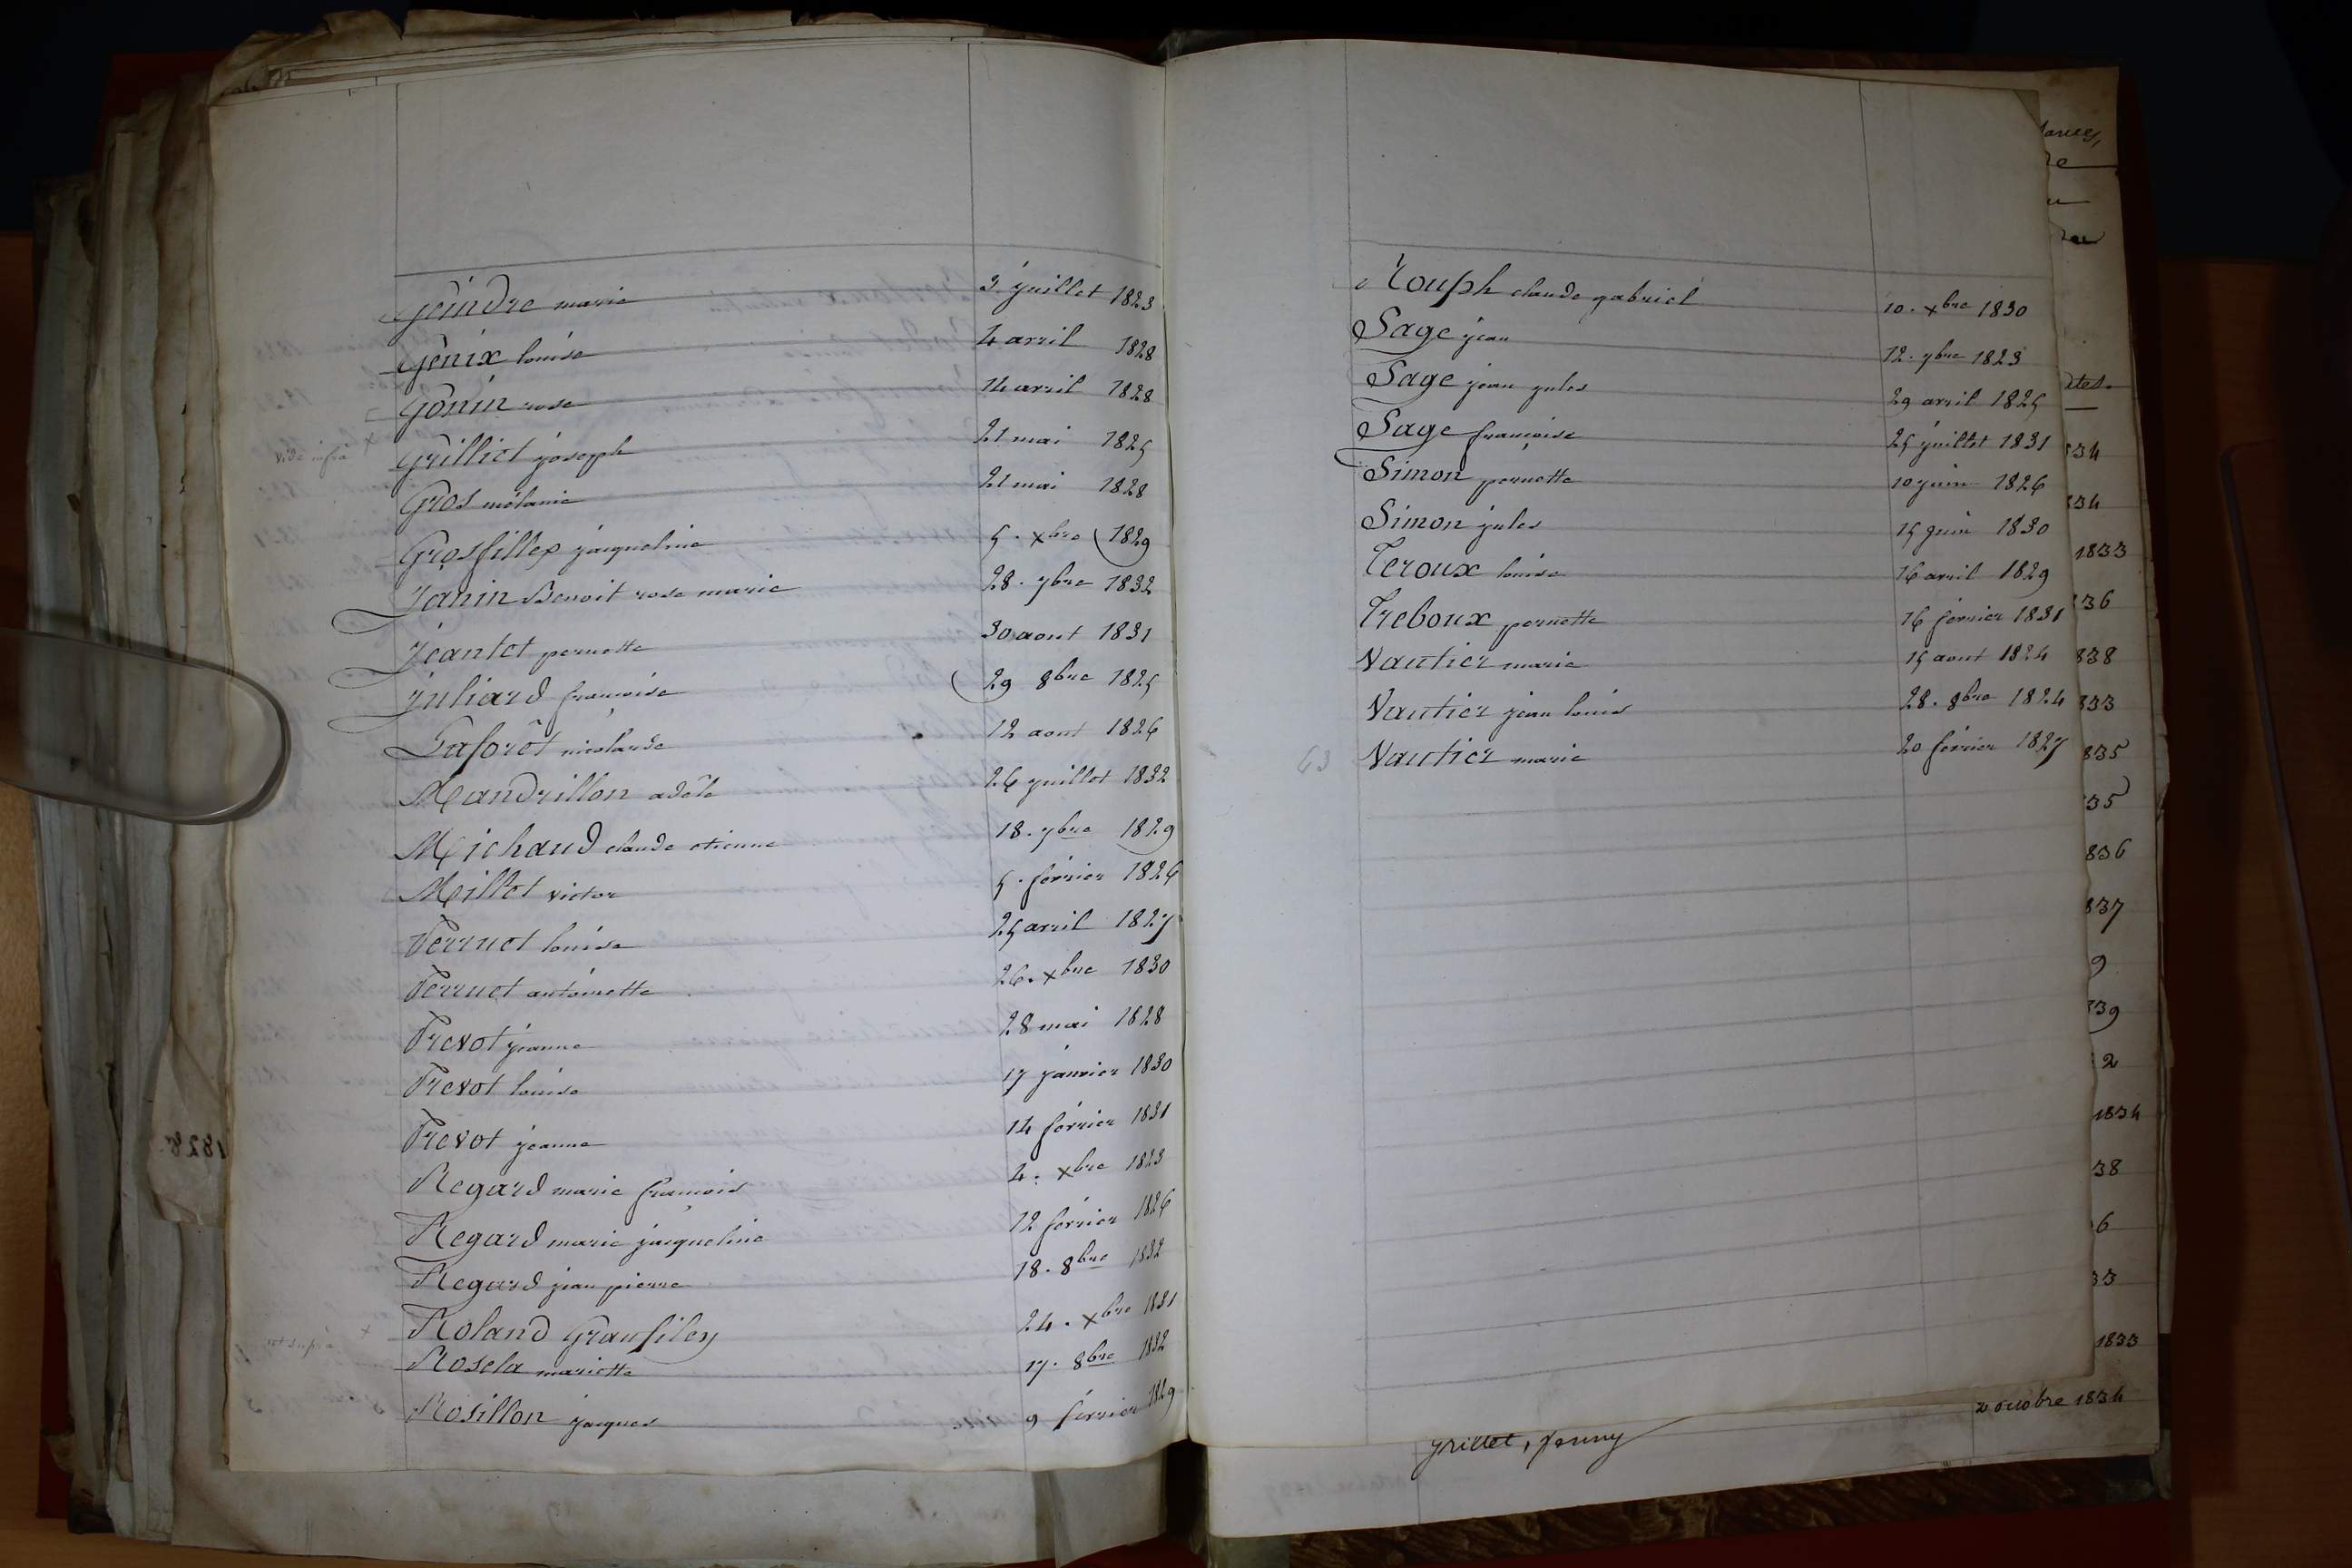 Geindre marie 3 juillet 1823
Genix louise 4 avril 1828
Gonin rose 14 avril 1828
vide infra × Grilliet joseph 21 mai 1825
Gros mélanie 21 mai 1828
Grosfillex jacqueline 5. xbre 1829
Janin Benoit rose marie 28. 7bre 1832
Jeantet pernette 30 aout 1831
Juliard françoise 29 8bre 1825
Laforêt nicolarde 12 aout 1826
Mandrillon adèle 26 juillet 1832
Michaud claude etienne 18. 7bre 1829
Millet victor 5. février 1826
Perruot louise 25 avril 1827
Perruot antoinette 26. xbre 1830
Prevot jeanne 28 mai 1828
Prevot louise 17 janvier 1830
Prevot jeanne 14 février 1831
Regard marie françois 4. xbre 1823
Regard marie jacqueline 12 février 1826
Regard jean pierre 18. 8bre 1832
× Roland Granfiley 24. xbre 1831
Rosela mariette 17. 8bre 1832
Rosillon jacques 9 février 1829
1828
Rouph claude gabriel 10. xbre 1830
Sage jean 12. 7bre 1823
Sage jean jules 29 avril 1825
Sage françoise 25 juillet 1831
Simon pernette 10 juin 1826
Simon jules 15 juin 1830
Teroux louise 16 avril 1829
Treboux pernette 16 février 1831
Vautier marie 15 aout 1824
Vautier jean louis 28. 8bre 1824
63 Vautier marie 20 février 1827
ates.
834
834
1833
836
838
833
835
835
836
837
9
839
2
1834
38
6
33
1833
2 octobre 1834
Grillet, Jenny